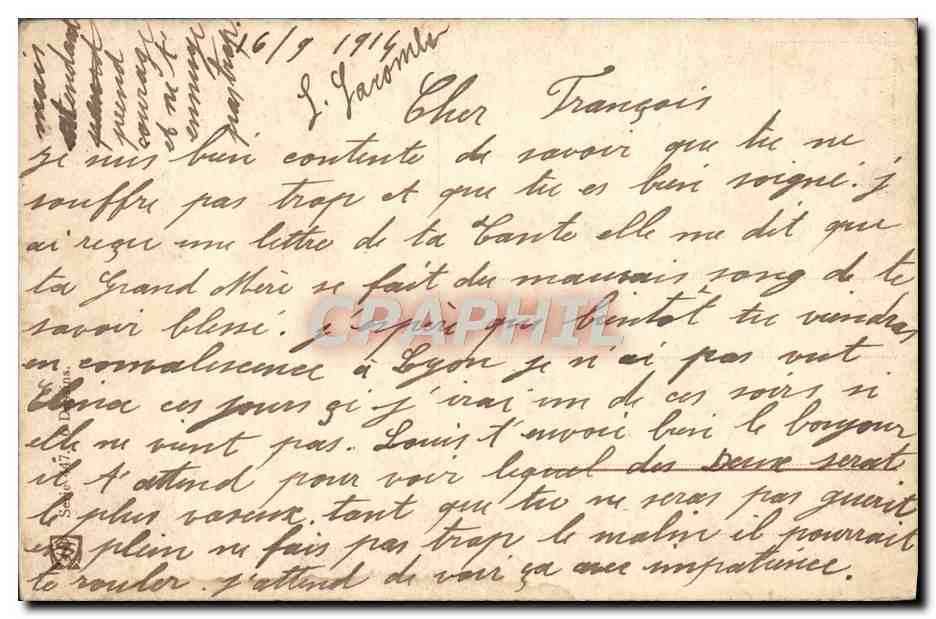 16/9 1914
Cher François
je suis bien contente de savoir que tu ne
souffre pas trop et que tu es bien soigné. j
ai reçue une lettre de ta Tante elle me dit que
ta Grand Mère se fait du mauvais sang de te
savoir blessé. j'espère que bientôt tu viendras
en convalescence à Lyon je n'ai pas vut
ces jours çi j'irai un de ces soirs si
elle ne vient pas. Louis t'envoie bien le bonjour
il t'attend pour voir lequel des Deux serat
le plus vaseux. tant que tu ne seras pas guerit
plein ne fais pas trop le malin il pourrait
te rouler. j'attend de voir ça avec impatience.
mais
attendant
prend
courage
et ne t
ennuie
pas trop.
L. Lacombe
CRAPHIL
Série 147